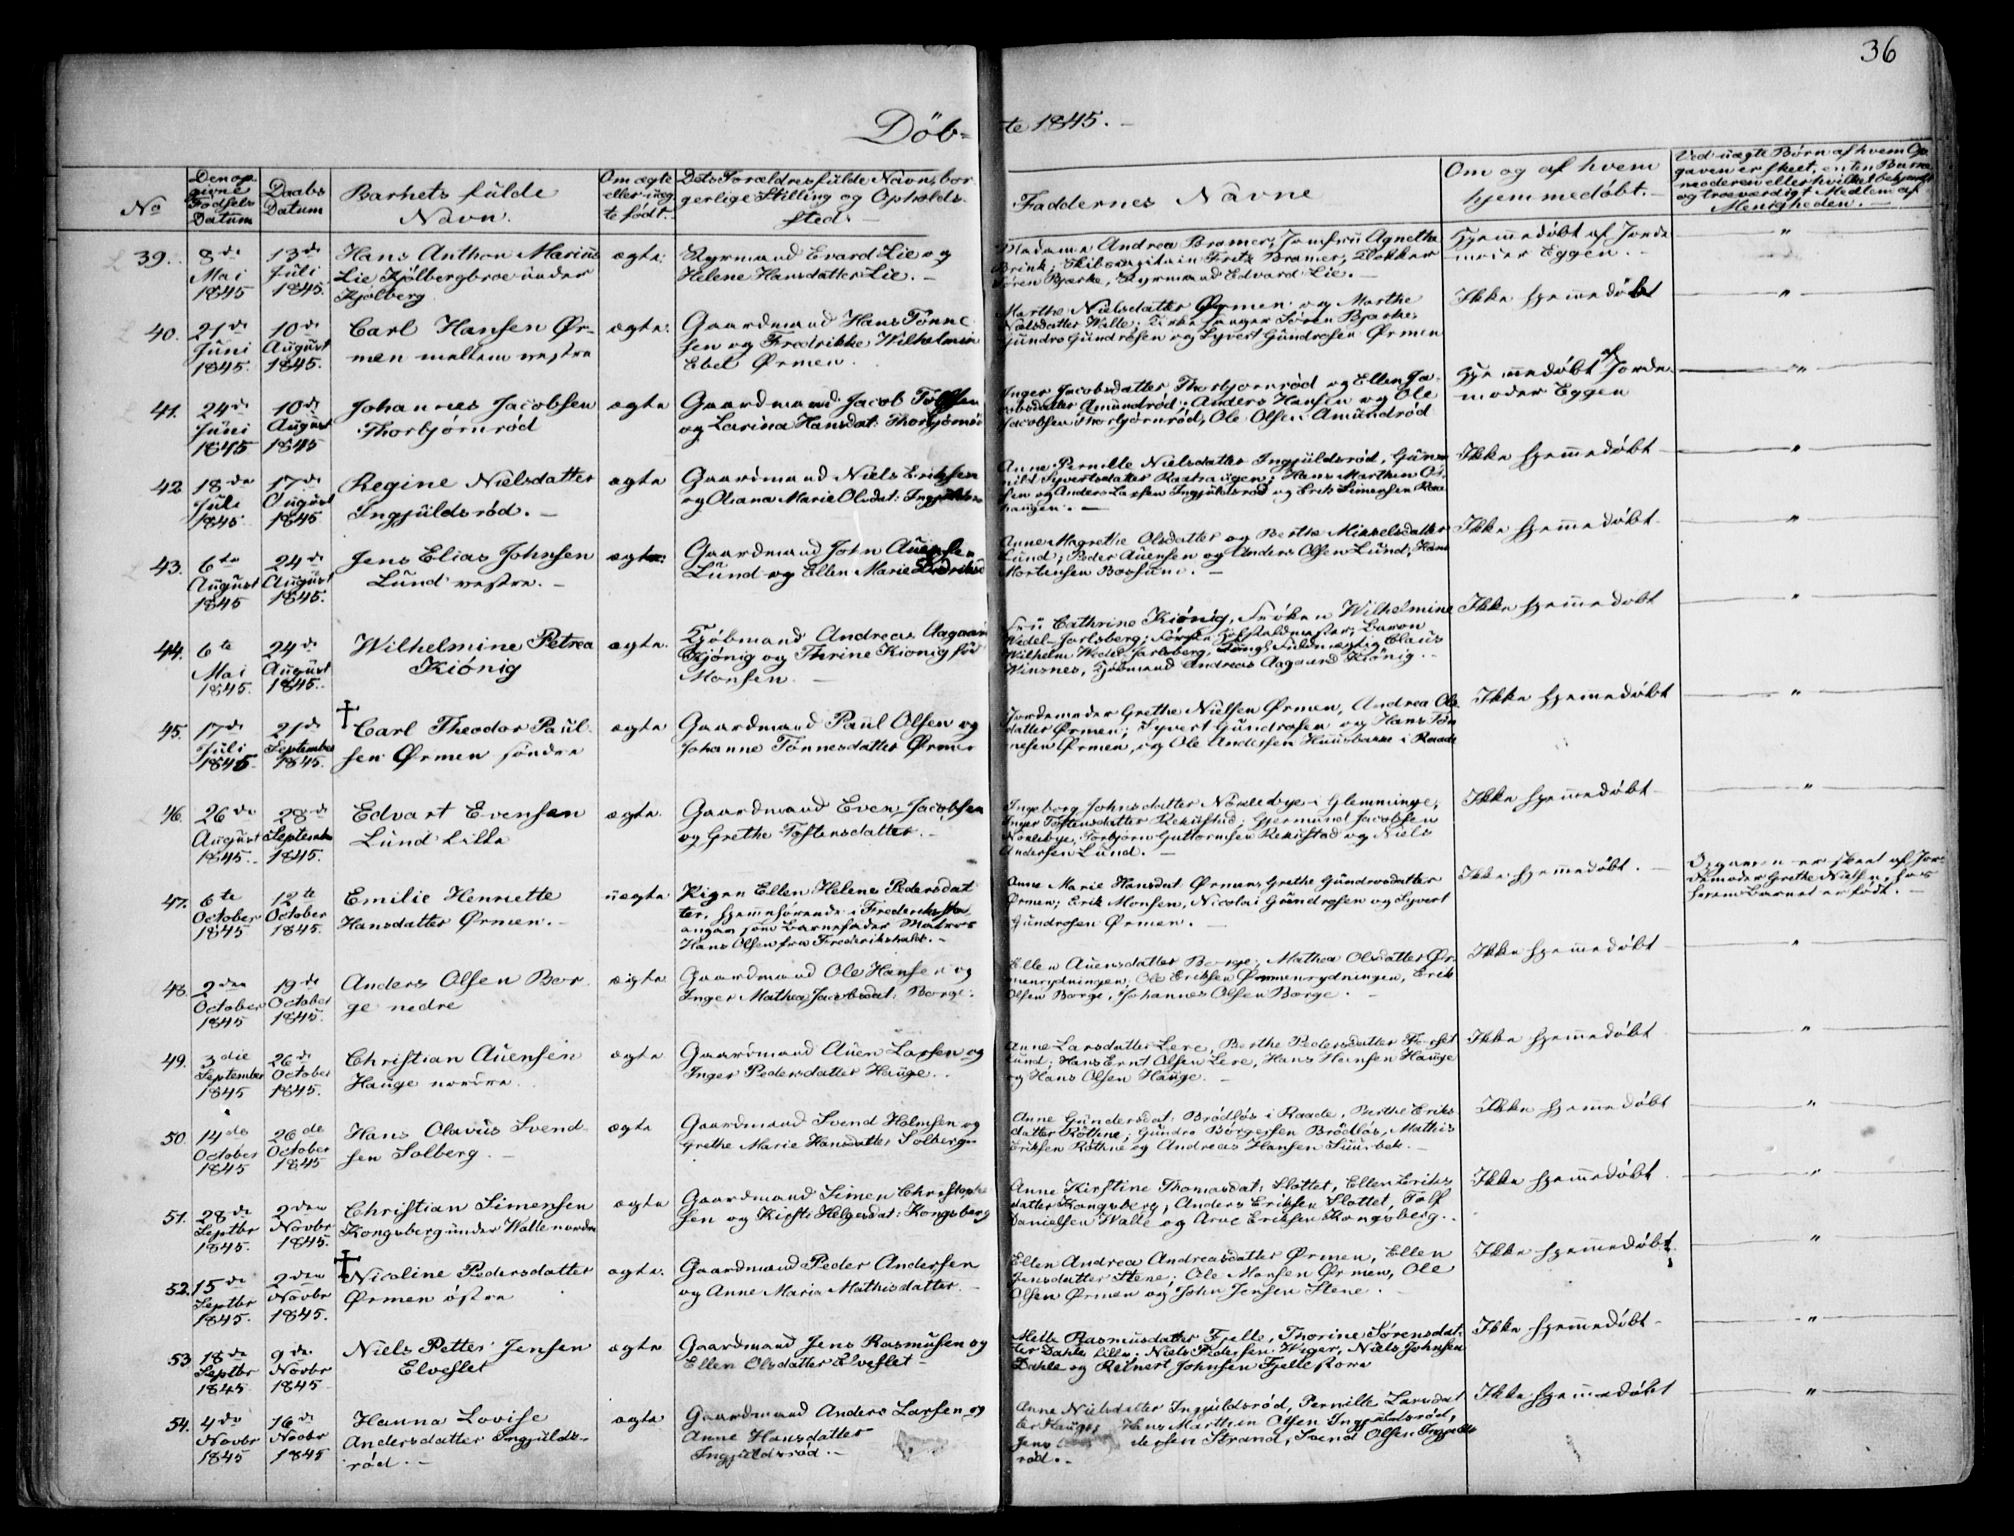 36
Döb- te 1845.
No
Den op-
givne
Fødsels
Datum
Daabs
Datum
Barnets fulde
Navn.
Om ægte
eller uæg
te født.
Dets Forældres fulde Navn, bor
gerlige Stilling og Opholds-
sted.
Faddernes Navne
Om og af hvem
hjemmedøbt.
Ved uægte Børn af hvem Op
gaven er skeet, enten Barne
moderen eller hvilket bekjendt
og troværdigt Medlem af
Menigheden.
39.
8de
Mai
1845
13de
Juli
1845.
Hans Anthon Marius
Lie Kjølbergbroe under
Kjølberg
ægte.
Styrmand Evard Lie og
Helene Hansdatter Lie.
Madame Andrea Bramer, Jomfru Agnethe
Brink; Skibscapitain Fritz Bramer, Klokker
Søren Bjerke, Styrmand Edvard Lie.
Hjemmedøbt af Jorde
moder Eggen.
"
40.
21de
Juni
1845.
10de
August
1845.
Carl Hansen Ør-
men mellem vestre
ægte.
Gaardmand Hans Tønne
sen og Fredrikke Wilhelmin
Ebel Ørmen.
Marthe Nielsdatter Ørmen og Marthe
Nielsdatter Walle; Kirkesanger Søren Bjerke,
Gundro Gundrosen og Syvert Gundrosen Ørmen
Ikke hjemmedøbt
"
41.
24de
Juni
1845
10de
August
1845
Johannes Jacobsen
Thorbjørnrød
ægte
Gaardmand Jacob Tolfsen
og Larina Hansdat: Thorbjørnrø
Inger Jacobsdatter Thorbjørnrød og Ellen Ja-
cobsdatter Amundrød; Anders Hansen og Ole
Jacobsen Thorbjørnrød, Ole Olsen Amundrød
Hjemmedøbt af Jorde
moder Eggen
"
42
18de
Juli
1845
17de
August
1845
Regine Nielsdatter
Ingjuldsrød.
ægte
Gaardmand Niels Eriksen
og Oleane Marie Olsdat: Ingjuldsrø
Anne Pernille Nielsdatter Ingjuldsrød, Gun-
nild Syvertsdatter Rastahugen; Hans Marthin Ol-
sen og Anders Larsen Ingjuldsrød og Erik Simensen Raae
haugen.
Ikke hjemmedøbt
"
43.
6te
August
1845
24de
August
1845.
Jens Elias Johnsen
Lund vestre.
ægte:
Gaardmand John Auensen
Lund og Ellen Marie
Anne Magrethe Olsdatter og Berthe Mikkelsdatter
Lund; Peder Auensen og Anders Olsen Lund, Hans
Mortensen Bossum.
Ikke hjemmedøbt
"
44.
6te
Mai
1845.
24de
August
1845.
Wilhelmine Petrea
Kiönig
ægte.
Kjøbmand Andreas Aagaard
Kjönig og Thrine Kionig fød
Monsen.
Fru Cathrine Kiönig, Frøken Wilhelmine
Wedel-Jarlsberg; Baron
Wilhelm Wedel Jarlsberg, Claus
Winsnes, Kjøbmand Andreas Aagaard Kiönig.
Ikke hjemmedøbt
"
45.
17de
Juli
1845
21de
September
1845.
† Carl Theodor Paul-
sen Ørmen søndre
ægte
Gaardmand Paul Olsen og
Johanne Tønnesdatter Ørmen
Jordemoder Grethe Nielsen Ørmen, Andrea Ols-
datter Ørmen; Syvert Gundrosen og Hans Tøn-
nesen Ørmen, og Ole Andersen Huusberne i Raade
Ikke hjemmedøbt
"
46.
26de
August
1845.
28de
September
1845.
Edvart Evensen
Lund Lille
ægte.
Gaardmand Even Jacobsen
og Grethe Tostensdatter.
Ingeborg Johnsdatter Norlebye i Glemminge,
Inger Tostensdatter Rekustad; Gjermund Jacobsen
Norlebye, Torbjørn Guttormsen Rekustad og Niels
Andersen Lund.
Ikke hjemmedøbt
"
47.
6te
October
1845
12te
October
1845.
Emilie Henriette
Hansdatter Ørmen.
uægte
Pigen Ellen Helene Pedersdat
ter, hjemmehørende i Frederikstad
angav som Barnefader Matros
Hans Olsen fra Frederikshald.
Anne Marie Hansdat: Ørmen, Grethe Gundrosdatter
Ørmen; Erik Monsen, Nicolai Gundrosen og Syvert
Gundrosen Ørmen.
Ikke hjemmedøbt.
Opgaven er skeet af Jor-
demoder Grethe Nielsen, hos
hvem Barnet er født.
48.
2den
October
1845
19de
October
1845.
Anders Olsen Bor-
ge nedre
ægte
Gaardmand Ole Hansen og
Inger Mathea Jacobsdat: Borge.
Ellen Auensdatter Borge, Mathea Olsdatter Ør-
menrydningen, Ole Eriksen Ørmenrydningen, Erik
Olsen Borge, Johannes Olsen Borge.
Ikke hjemmedøbt
"
49.
3die
September
1845
26de
October
1845.
Christian Auensen
Hauge nordre
ægte
Gaardmand Auen Larsen og
Inger Pedersdatter Hauge.
Anne Larsdatter Lere, Berthe Pedersdatter
Lund; Hans Ernt Olsen Lere, Hans Hansen Hauge
og Hans Olsen Hauge.
Ikke hjemmedøbt
"
50.
14de
October
1845
26de
October
1845
Hans Olavus Svend-
sen Solberg.
ægte
Gaardmand Svend Holmsen og
Grethe Marie Hansdatter Solberg
Anne Gundersdat: Brødløs i Raade, Berthe Eriks-
datter Röthne; Gundro Børgersen Brødløs, Mathis
Eriksen Röthne og Andreas Hansen Suurbek.
Ikke hjemmedøbt
"
51.
28de
Septbr
1845.
2den
Novbr
1845.
Christian Simensen
Kongsberg under Walle nordre
ægte
Gaardmand Simen Christophe
sen og Kirsti Helgesdat: Kongsberg
Anne Kirstine Thomasdat: Slottet, Ellen Eriks
datter Kongsberg; Anders Eriksen Slottet, Tolf
Danielsen Walle og Arne Eriksen Kongsberg.
Ikke hjemmedøbt
"
52.
15de
Septbr
1845.
2den
Novbr
1845.
† Nicoline Pedersdatter
Ørmen østre
ægte.
Gaardmand Peder Andersen
og Anne Maria Mathisdatter.
Ellen Andrea Andreasdatter Ørmen, Ellen
Jensdatter Stene; Ole Monsen Ørmen, Ole
Olsen Ørmen og John Jensen Stene.
Ikke hjemmedøbt.
"
53
18de
Septbr
1845
9de
Novbr
1845
Niels Petter Jensen
Elveflet
ægte
Gaardmand Jens Rasmusen og
Ellen Olsdatter Elveflet
Mette Rasmusdatter Fjelle, Thorine Sørensdat-
ter Dahle lille; Niels Pedersen Wiger, Niels Johnsen
Dahle og Reinert Johnsen Fjelle store
Ikke hjemmedøbt
"
54.
4de
Novbr
1845
16de
Novbr
1845
Hanna Lovise
Andersdatter Ingjulds-
rød.
ægte
Gaardmand Anders Larsen og
Anne Hansdatter
Ingjuldsrød.
Anne Nielsdatter Ingjuldsrød, Pernille Larsdat
ter Hauge; Hans Marthin Olsen Ingjuldsrød,
Jens dersen Strand, Svend Olsen Ingjulds
rød.
Ikke hjemmedøbt
"